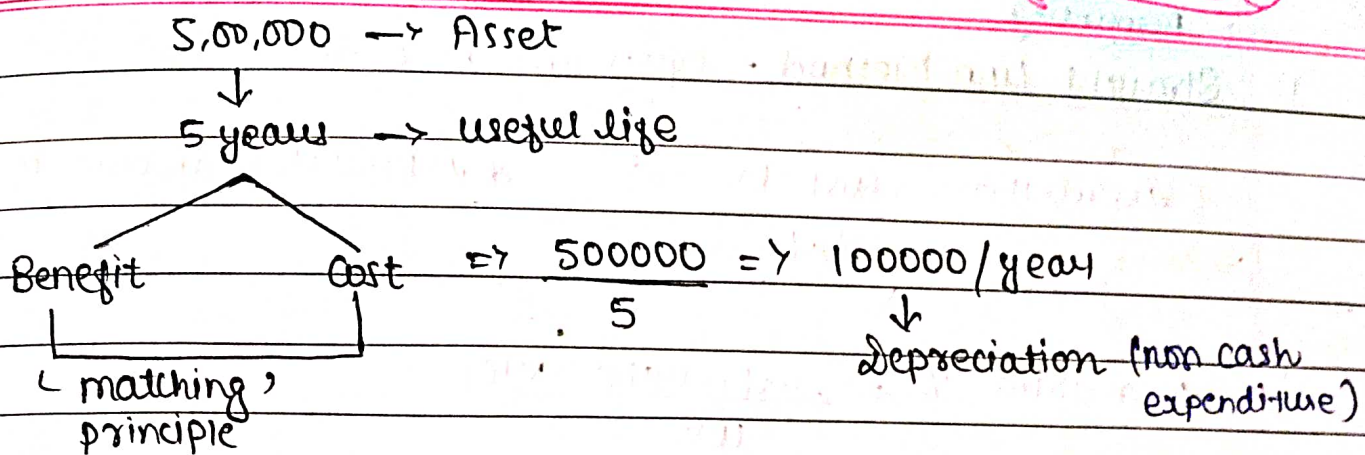 5,00,000 → Asset
↓
5 years → useful life
Benefit Cost => 500000 => 100000/year
5
↓
Depreciation (non cash
expenditure)
‘matching’
principle